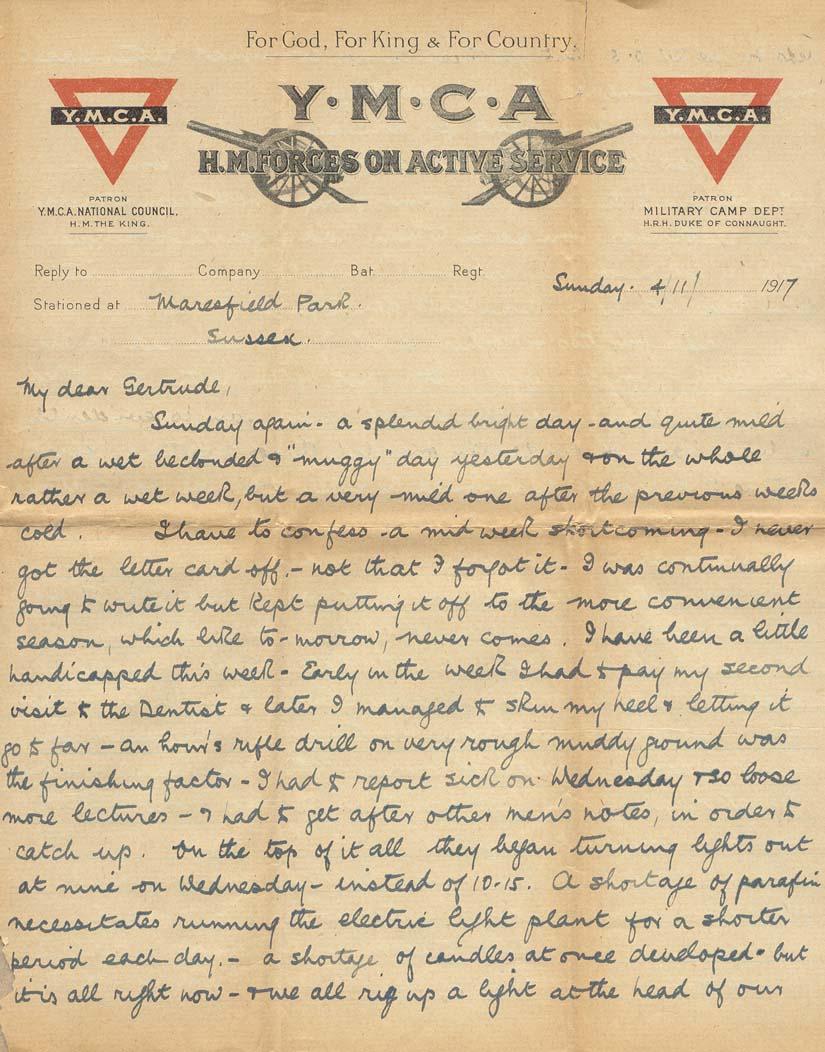 For God, For King & For Country.
Y.M.C.A.
Y·M·C·A
Y.M.C.A.
H.M. FORCES ON ACTIVE SERVICE
PATRON
Y.M.C.A. NATIONAL COUNCIL.
H.M. THE KING.
PATRON
MILITARY CAMP DEPT
H.R.H. DUKE OF CONNAUGHT.
Reply to Company Bat. Regt.
Sunday. 4/11/ 1917
Stationed at Maresfield Park.
Sussex.
My dear Gertrude,
Sunday again - a splendid bright day - and quite mild
after a wet beclouded & "muggy" day yesterday & on the whole
rather a wet week, but a very mild one after the previous weeks
cold. I have to confess a mid week shortcoming - I never
got the letter card off. - not that I forgot it - I was continually
going to write it but kept putting it off to the more convenient
season, which like to-morrow, never comes. I have been a little
handicapped this week - Early in the week I had to pay my second
visit to the Dentist & later I managed to skin my heel & letting it
go to far - an hour's rifle drill on very rough muddy ground was
the finishing factor - I had to report sick on Wednesday & so loose
more lectures - & had to get after other men's notes, in order to
catch up. On the top of it all they began turning lights out
at nine on Wednesday - instead of 10-15. A shortage of parafin
necessitates running the electric light plant for a shorter
period each day. - a shortage of candles at once developed - but
it is all right now - & we all rig up a light at the head of our